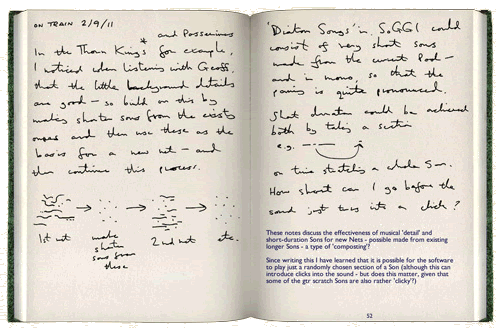 ON TRAIN 2/9/11
and Possessions
In the Thorn Kings* for example,
I noticed when listening with Geoff,
that the little background details
are good – so build on this by
making shorter sons from the existing
ones and then use these as the
basis for a new net – and
then continue this process.
1st net
make shorter sons from these
2nd net
etc.
'Diaton Songs' in SoGGI could
consist of very short sons
made from the current Pool –
and in mono, so that the
panning is quite pronounced.
Short duration could be achieved
both by taking a section
e.g.
or time stretching a whole Son.
How short can I go before the
sound just turns into a click?
These notes discuss the effectiveness of musical 'detail' and
short-duration Sons for new Nets - possible made from existing
longer Sons - a type of 'composting'?
Since writing this I have learned that it is possible for the software
to play just a randomly chosen section of a Son (although this can
introduce clicks into the sound - but does this matter, given that
some of the gtr scratch Sons are also rather 'clicky'?)
52